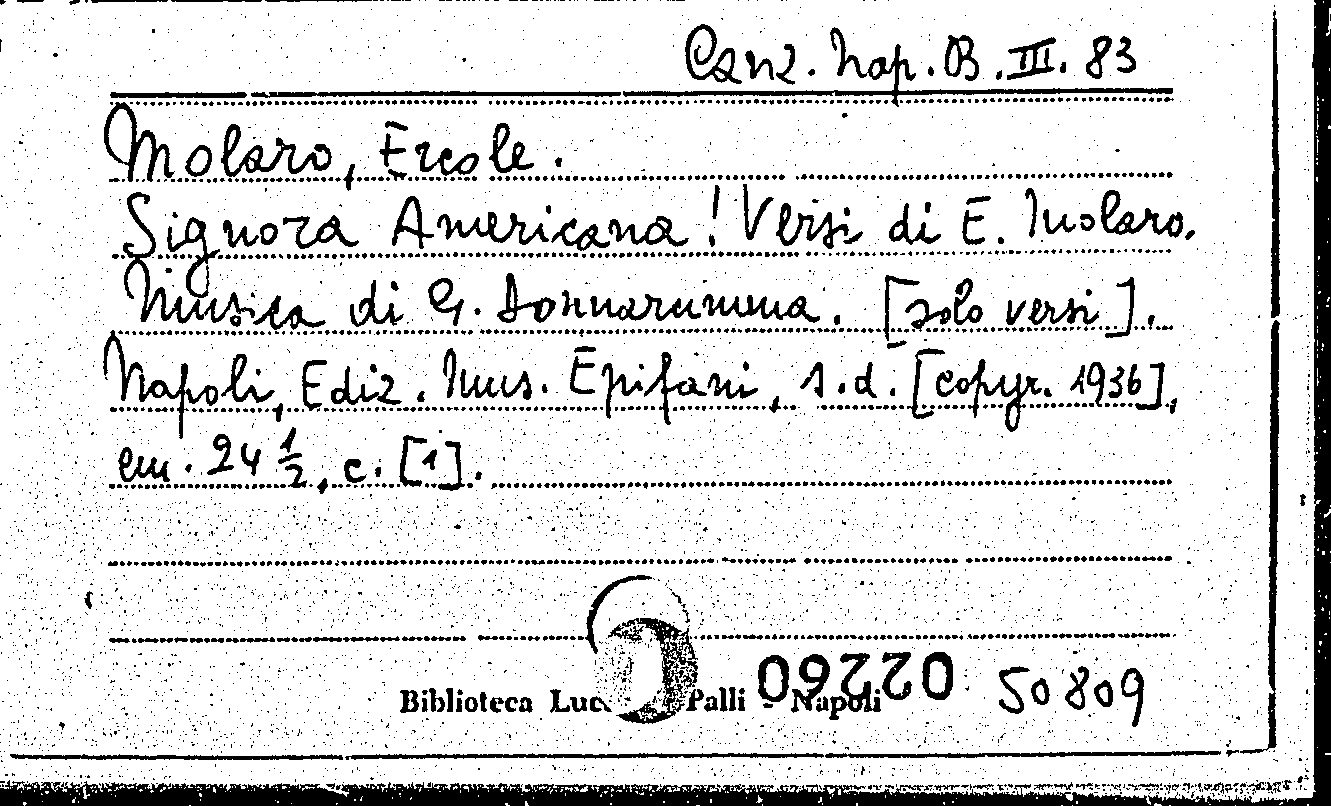 Canz. Nap. B. III. 83
Molaro, Ercole.
Signora Americana! Versi di E. Molaro.
Musica di G. Donnarumma. [solo versi].
Napoli, Ediz. Mus. Epifani, s.d. [copyr. 1936],
cm. 24 1/2, c. [1].
Biblioteca Palli - Napoli
02260 50809